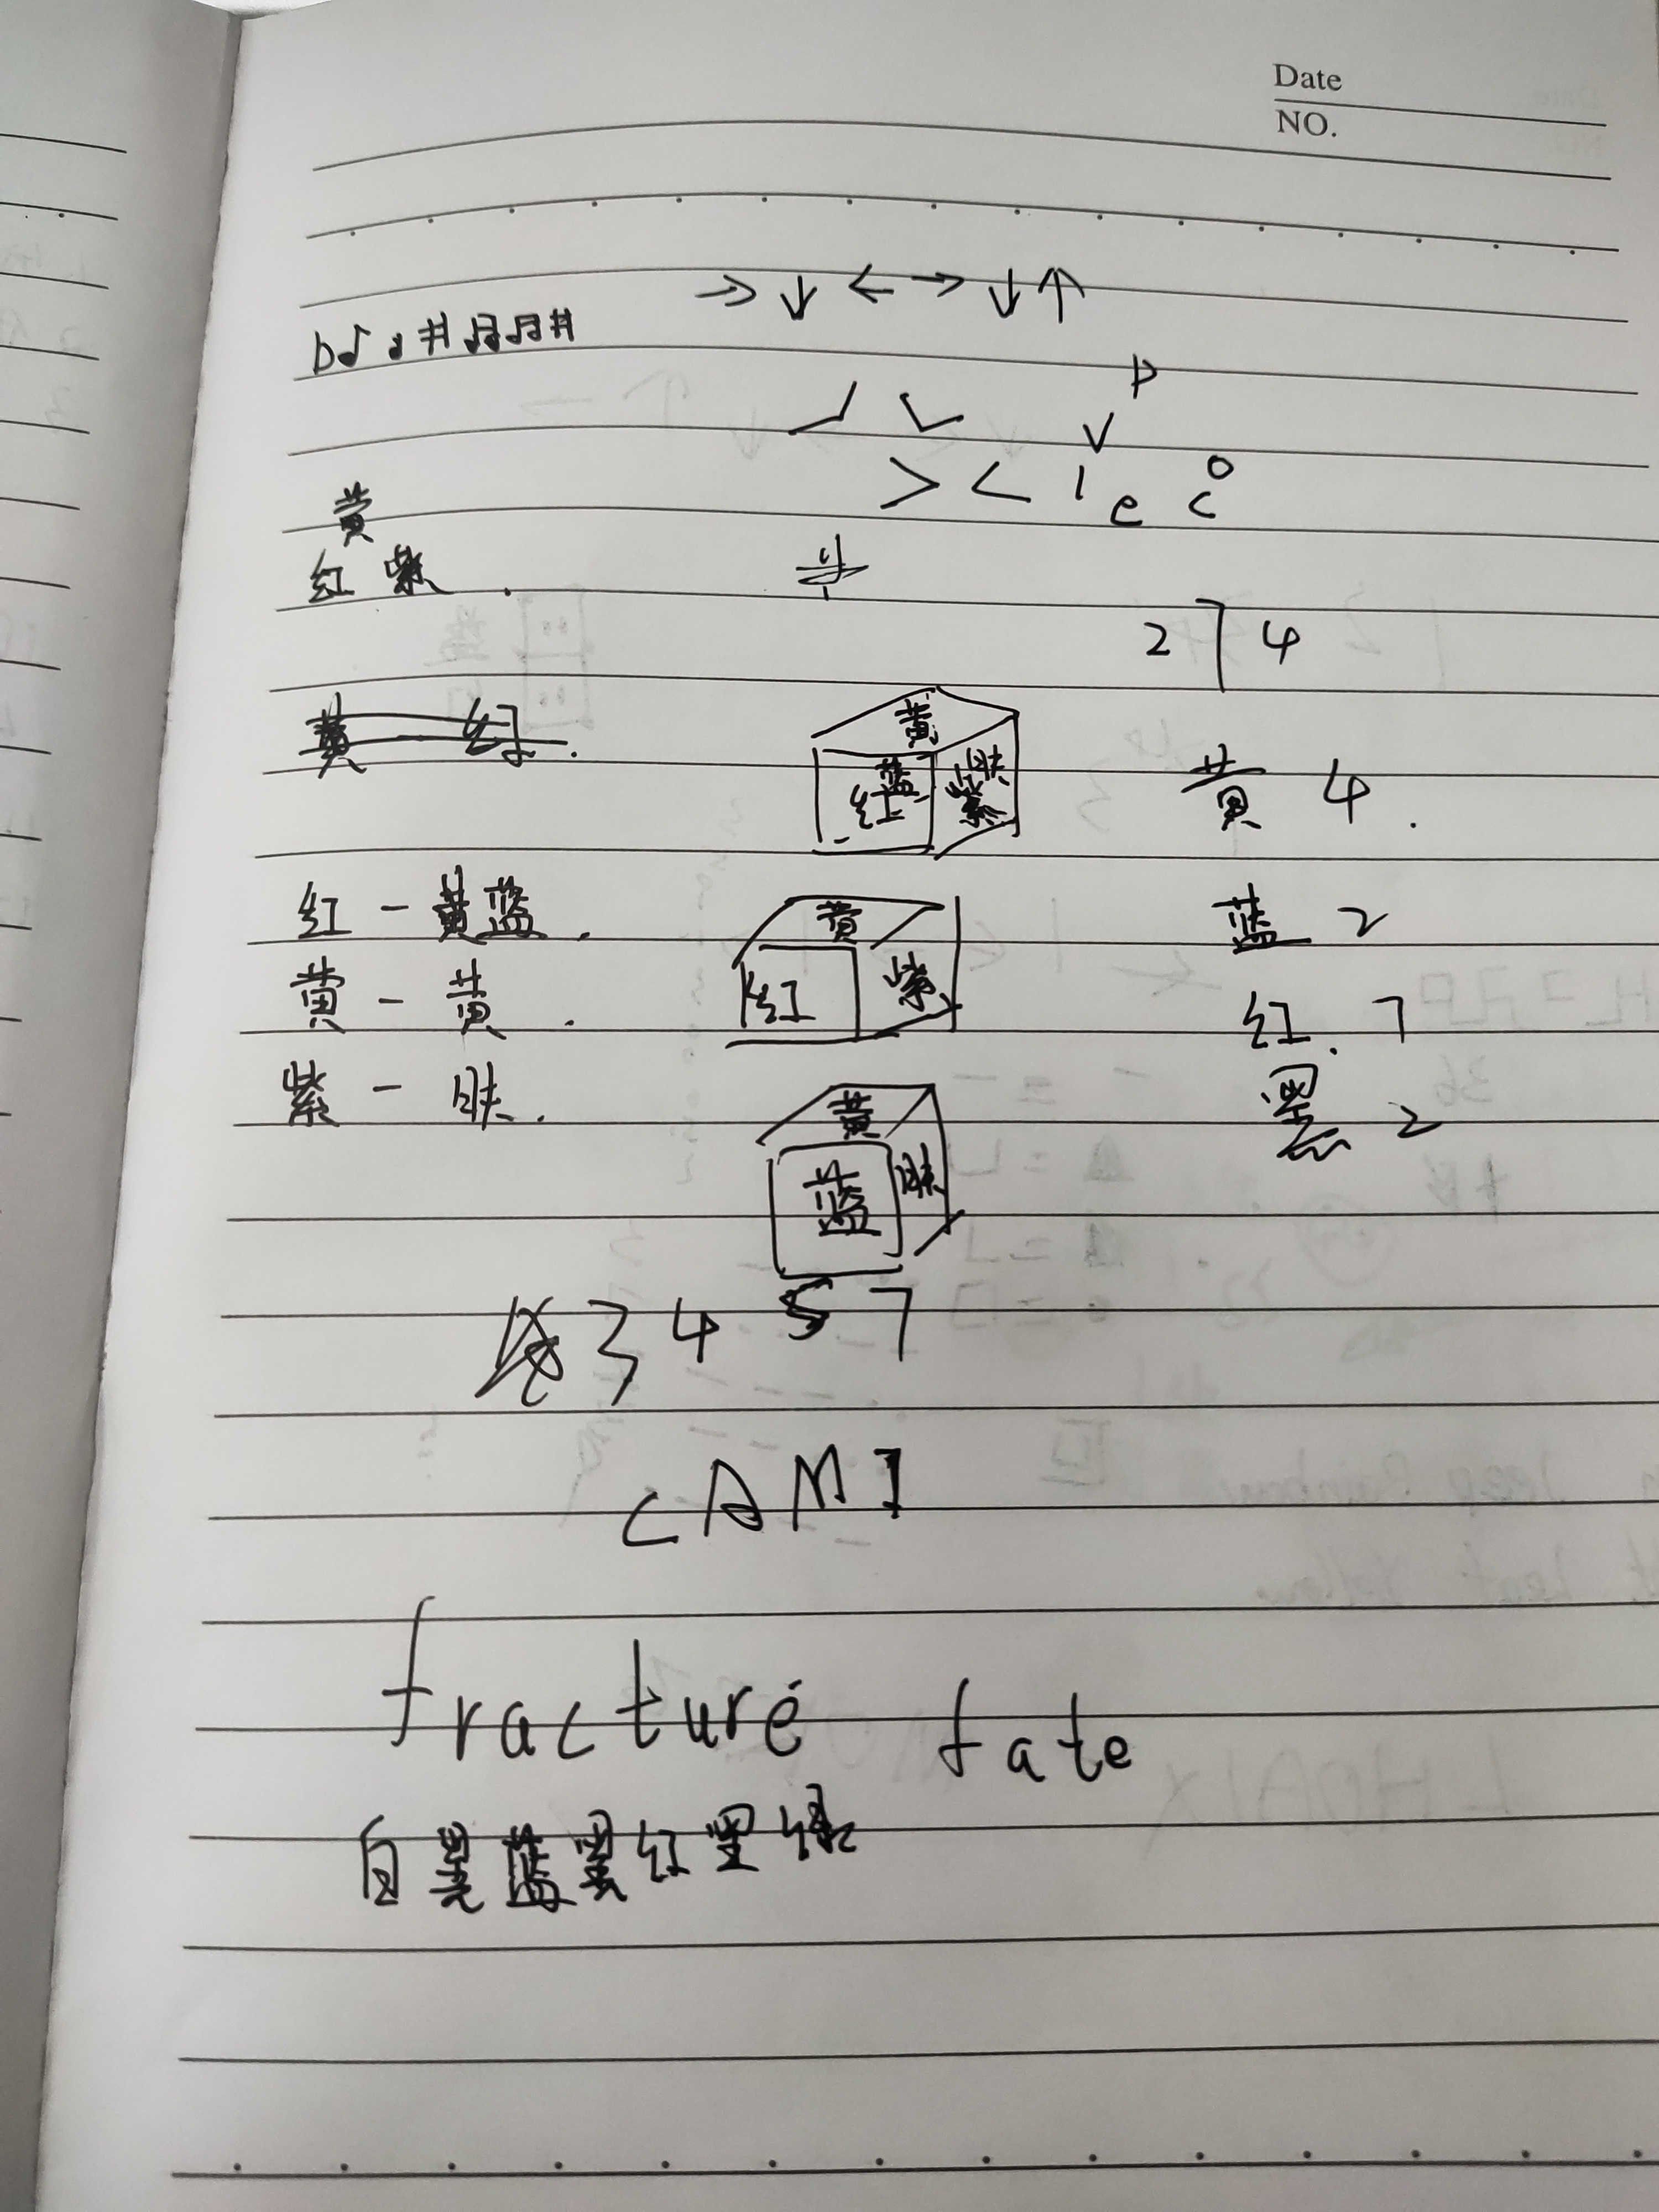 Date
NO.
→ ↓ ← → ↓ ↑
b♪ ♩ # ♫ ♫ #
P
V
> < 1 e c o
黄
红 紫 .
2 4
黄 红 .
黄
红 蓝 紫 肤
黄 4 .
红 - 黄蓝 .
黄
红 紫
蓝 2
黄 - 黄 .
红 . 7
紫 - 肤 .
黄
蓝 肤
黑 2
3 4 5 7
CAMI
fracture fate
白黑蓝黑红黑绿